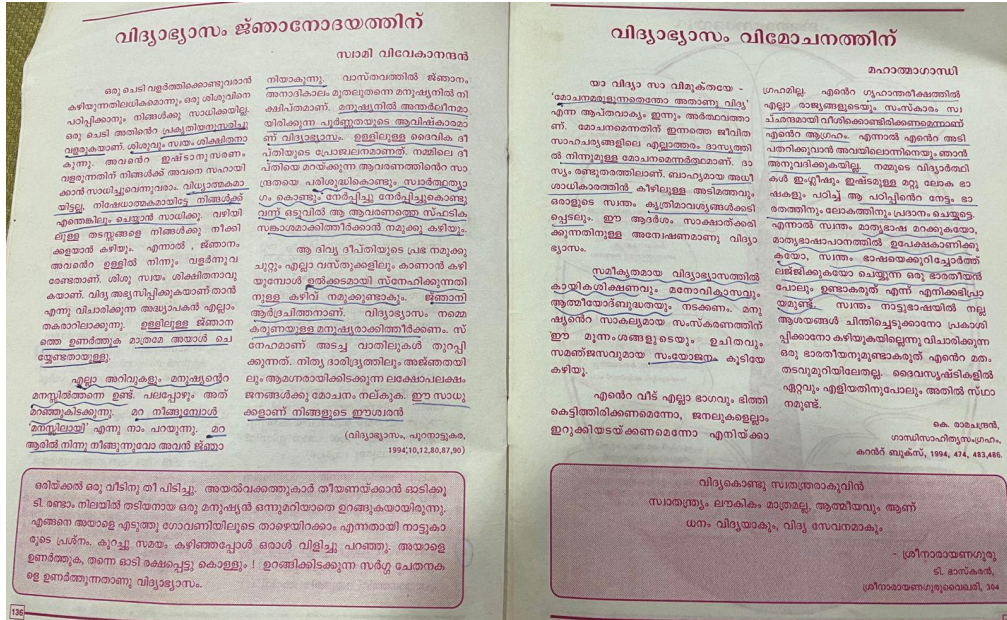 വിദ്യാഭ്യാസം ജ്ഞാനോദയത്തിന്
സ്വാമി വിവേകാനന്ദൻ
ഒരു ചെടി വളർത്തിക്കൊണ്ടുവരാൻ
കഴിയുന്നതിലധികമൊന്നും ഒരു ശിശുവിനെ
പഠിപ്പിക്കാനും നിങ്ങൾക്കു സാധിക്കയില്ല.
ഒരു ചെടി അതിന്റെ പ്രകൃതിയനുസരിച്ചു
വളരുകയാണ്. ശിശുവും സ്വയം ശിക്ഷിതനാ
കുന്നു. അവന്റെ ഇഷ്ടാനുസരണം
വളരുന്നതിന് നിങ്ങൾക്ക് അവനെ സഹായി
ക്കാൻ സാധിച്ചുവെന്നുവരാം. വിധ്യാത്മകമാ
യിട്ടല്ല, നിഷേധാത്മകമായിട്ടേ നിങ്ങൾക്ക്
എന്തെങ്കിലും ചെയ്യാൻ സാധിക്കൂ. വഴിയി
ലുള്ള തടസ്സങ്ങളെ നിങ്ങൾക്കു നീക്കി
ക്കളയാൻ കഴിയും. എന്നാൽ, ജ്ഞാനം
അവന്റെ ഉള്ളിൽ നിന്നും വളർന്നുവ
രേണ്ടതാണ്. ശിശു സ്വയം ശിക്ഷിതനാവു
കയാണ്. വിദ്യ അഭ്യസിപ്പിക്കുകയാണ് താൻ
എന്നു വിചാരിക്കുന്ന അദ്ധ്യാപകൻ എല്ലാം
തകരാറിലാക്കുന്നു. ഉള്ളിലുള്ള ജ്ഞാന
ത്തെ ഉണർത്തുക മാത്രമേ അയാൾ ചെ
യ്യേണ്ടതായുള്ളു.
എല്ലാ അറിവുകളും മനുഷ്യന്റെ
മനസ്സിൽത്തന്നെ ഉണ്ട്. പലപ്പോഴും അത്
മറഞ്ഞുകിടക്കുന്നു. മറ നീങ്ങുമ്പോൾ
'മനസ്സിലായി' എന്നു നാം പറയുന്നു. മറ
ആരിൽ നിന്നു നീങ്ങുന്നുവോ അവൻ ജ്ഞാ
നിയാകുന്നു. വാസ്തവത്തിൽ ജ്ഞാനം
അനാദികാലം മുതലുതന്നെ മനുഷ്യനിൽ നി
ക്ഷിപ്തമാണ്. മനുഷ്യനിൽ അന്തർലീനമാ
യിരിക്കുന്ന പൂർണ്ണതയുടെ ആവിഷ്കാരമാ
ണ് വിദ്യാഭ്യാസം. ഉള്ളിലുള്ള ദൈവിക ദീ
പ്തിയുടെ പ്രോജ്വലനമാണത്. നമ്മിലെ ദീ
പ്തിയെ മറയ്ക്കുന്ന ആവരണത്തിന്റെ സാ
ന്ദ്രതയെ പരിശുദ്ധികൊണ്ടും സ്വാർത്ഥത്യാ
ഗം കൊണ്ടും നേർപ്പിച്ചു നേർപ്പിച്ചുകൊണ്ടു
വന്ന് ഒടുവിൽ ആ ആവരണത്തെ സ്ഫടിക
സങ്കാശമാക്കിത്തീർക്കാൻ നമുക്കു കഴിയും.
ആ ദിവ്യ ദീപ്തിയുടെ പ്രഭ നമുക്കു
ചുറ്റും എല്ലാ വസ്തുക്കളിലും കാണാൻ കഴി
യുമ്പോൾ ഉൽക്കടമായി സ്നേഹിക്കുന്നതി
നുള്ള കഴിവ് നമുക്കുണ്ടാകും. ജ്ഞാനി
ആർദ്രചിത്തനാണ്. വിദ്യാഭ്യാസം നമ്മെ
കരുണയുള്ള മനുഷ്യരാക്കിത്തീർക്കണം. സ്
നേഹമാണ് അടച്ച വാതിലുകൾ തുറപ്പി
ക്കുന്നത്. നിത്യ ദാരിദ്ര്യത്തിലും അജ്ഞതയി
ലും ആമഗ്നരായിക്കിടക്കുന്ന ലക്ഷോപലക്ഷം
ജനങ്ങൾക്കു മോചനം നല്കുക. ഈ സാധു
ക്കളാണ് നിങ്ങളുടെ ഈശ്വരൻ
(വിദ്യാഭ്യാസം, പുറനാട്ടുകര,
1994,10,12,80,87,90)
ഒരിയ്ക്കൽ ഒരു വീടിനു തീ പിടിച്ചു. അയൽവക്കത്തുകാർ തീയണയ്ക്കാൻ ഓടിക്കൂ
ടി. രണ്ടാം നിലയിൽ തടിയനായ ഒരു മനുഷ്യൻ ഒന്നുമറിയാതെ ഉറങ്ങുകയായിരുന്നു.
എങ്ങനെ അയാളെ എടുത്തു ഗോവണിയിലൂടെ താഴെയിറക്കാം എന്നതായി നാട്ടുകാ
രുടെ പ്രശ്നം. കുറച്ചു സമയം കഴിഞ്ഞപ്പോൾ ഒരാൾ വിളിച്ചു പറഞ്ഞു. അയാളെ
ഉണർത്തുക, തന്നെ ഓടി രക്ഷപ്പെട്ടു കൊള്ളും ! ഉറങ്ങിക്കിടക്കുന്ന സർഗ്ഗ ചേതനക
ളെ ഉണർത്തുന്നതാണു വിദ്യാഭ്യാസം.
136
വിദ്യാഭ്യാസം വിമോചനത്തിന്
മഹാത്മാഗാന്ധി
യാ വിദ്യാ സാ വിമുക്തയേ -
'മോചനമരുളുന്നതെന്തോ അതാണു വിദ്യ'
എന്ന ആപ്തവാക്യം ഇന്നും അർത്ഥവത്താ
ണ്. മോചനമെന്നതിന് ഇന്നത്തെ ജീവിത
സാഹചര്യങ്ങളിലെ എല്ലാത്തരം ദാസ്യത്തി
ൽ നിന്നുമുള്ള മോചനമെന്നർത്ഥമാണ്. ദാ
സ്യം രണ്ടുതരത്തിലാണ്. ബാഹ്യമായ അധീ
ശാധികാരത്തിൻ കീഴിലുള്ള അടിമത്തവും
ഒരാളുടെ സ്വന്തം കൃത്രിമാവശ്യങ്ങൾക്കടി
പ്പെടലും. ഈ ആദർശം സാക്ഷാത്ക്കരി
ക്കുന്നതിനുള്ള അന്വേഷണമാണു വിദ്യാ
ഭ്യാസം.
സമീകൃതമായ വിദ്യാഭ്യാസത്തിൽ
കായികശിക്ഷണവും മനോവികാസവും
ആത്മീയോദ്ബുദ്ധതയും നടക്കണം. മനു
ഷ്യന്റെ സാകല്യമായ സംസ്കരണത്തിന്
ഈ മൂന്നംശങ്ങളുടെയും ഉചിതവും
സമഞ്ജസവുമായ സംയോജനം കൂടിയേ
കഴിയൂ.
എന്റെ വീട് എല്ലാ ഭാഗവും ഭിത്തി
കെട്ടിത്തിരിക്കണമെന്നോ, ജനലുകളെല്ലാം
ഇറുക്കിയടയ്ക്കണമെന്നോ എനിയ്ക്കാ
ഗ്രഹമില്ല. എന്റെ ഗൃഹാന്തരീക്ഷത്തിൽ
എല്ലാ രാജ്യങ്ങളുടെയും സംസ്കാരം സ്വ
ച്ഛന്ദമായി വീശിക്കൊണ്ടിരിക്കണമെന്നാണ്
എന്റെ ആഗ്രഹം. എന്നാൽ എന്റെ അടി
പതറിക്കുവാൻ അവയിലൊന്നിനെയും ഞാൻ
അനുവദിക്കുകയില്ല. നമ്മുടെ വിദ്യാർത്ഥി
കൾ ഇംഗ്ലീഷും ഇഷ്ടമുള്ള മറ്റു ലോക ഭാ
ഷകളും പഠിച്ച് ആ പഠിപ്പിന്റെ നേട്ടം ഭാ
രതത്തിനും ലോകത്തിനും പ്രദാനം ചെയ്യട്ടെ.
എന്നാൽ സ്വന്തം മാതൃഭാഷ മറക്കുകയോ,
മാതൃഭാഷാപഠനത്തിൽ ഉപേക്ഷകാണിക്കു
കയോ, സ്വന്തം ഭാഷയെക്കുറിച്ചോർത്ത്
ലജ്ജിക്കുകയോ ചെയ്യുന്ന ഒരു ഭാരതീയൻ
പോലും ഉണ്ടാകരുത് എന്ന് എനിക്കഭിപ്രാ
യമുണ്ട്. സ്വന്തം നാട്ടുഭാഷയിൽ നല്ല
ആശയങ്ങൾ ചിന്തിച്ചെടുക്കാനോ പ്രകാശി
പ്പിക്കാനോ കഴിയുകയില്ലെന്നു വിചാരിക്കുന്ന
ഒരു ഭാരതീയനുമുണ്ടാകരുത് എന്റെ മതം
തടവുമുറിയിലേതല്ല. ദൈവസൃഷ്ടികളിൽ
ഏറ്റവും എളിയതിനുപോലും അതിൽ സ്ഥാ
നമുണ്ട്.
കെ. രാമചന്ദ്രൻ,
ഗാന്ധിസാഹിത്യസംഗ്രഹം,
കറന്റ് ബുക്സ്, 1994, 474, 483,486.
വിദ്യകൊണ്ടു സ്വതന്ത്രരാകുവിൻ
സ്വാതന്ത്ര്യം ലൗകികം മാത്രമല്ല, ആത്മീയവും ആണ്
ധനം വിദ്യയാകും, വിദ്യ സേവനമാകും
- ശ്രീനാരായണഗുരു
ടി. ഭാസ്കരൻ,
ശ്രീനാരായണഗുരുവൈഖരി, 304